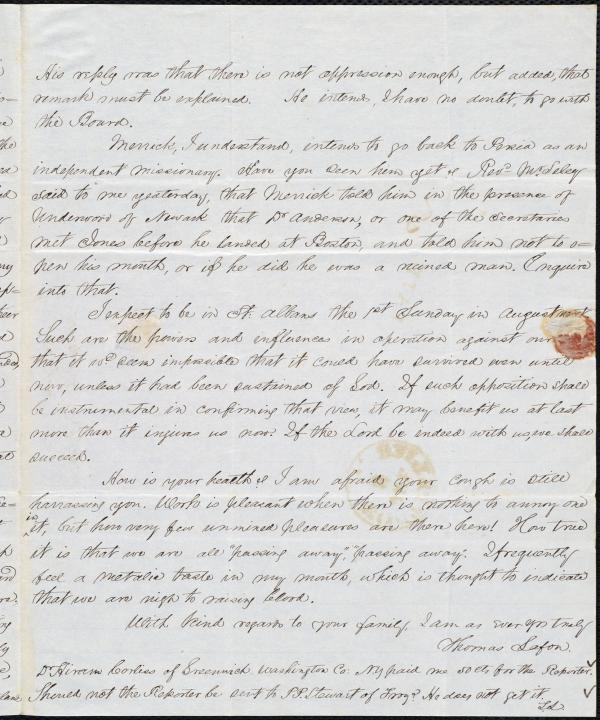 His reply was that there is not oppression enough, but added, that
remark must be explained. He intends, I have no doubt, to go with
the Board.
Merrick, I understand, intends to go back to Persia as an
independent missionary. Have you seen him yet? Revd
said to me yesterday, that Merrick told him in the presence of
Underwood of Newark that Dr Anderson, or one of the secretaries
met Jones before he landed at Boston, and told him not to o-
pen his mouth, or if he did he was a ruined man. Enquire
into that.
I expect to be in St. Albans the 1st Sunday in August next
Such are the powers and influences in operation against our
that it wd seem impossible that it could have survived even until
now, unless it had been sustained of God. If such opposition shall
be instrumental in confirming that view, it may benefit us at last
more than it injures us now. If the Lord be indeed with us, we shall
succeed.
How is your health? I am afraid your cough is still
harrassing you. Work is pleasant when there is nothing to annoy one
in it, but how very few unmixed pleasures are there here! How true
it is that we are all "passing away", "passing away". I frequently
feel a metalic taste in my mouth, which is thought to indicate
that we are nigh to raising blood.
With kind regards to your family, I am as ever yrs truly
Thomas Lafon.
Dr Hiram Corliss of Greenwich Washington Co. NY paid me 50 cts for the Reporter.
Should not the Reporter be sent to P.P. Stewart of Troy? He does not get it.